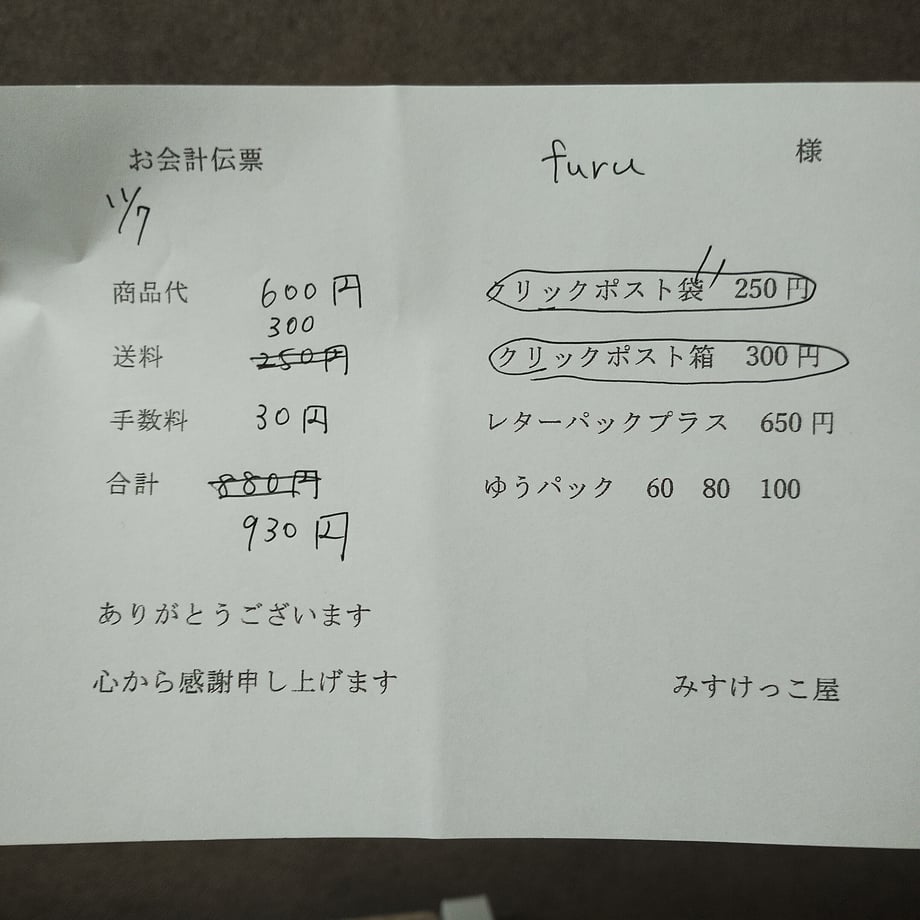 お会計伝票
furu 様
11/7
商品代 600円
300
送料 250円
手数料 30円
合計 880円
930円
クリックポスト袋 250円
クリックポスト箱 300円
レターパックプラス 650円
ゆうパック 60 80 100
ありがとうございます
心から感謝申し上げます
みすけっこ屋